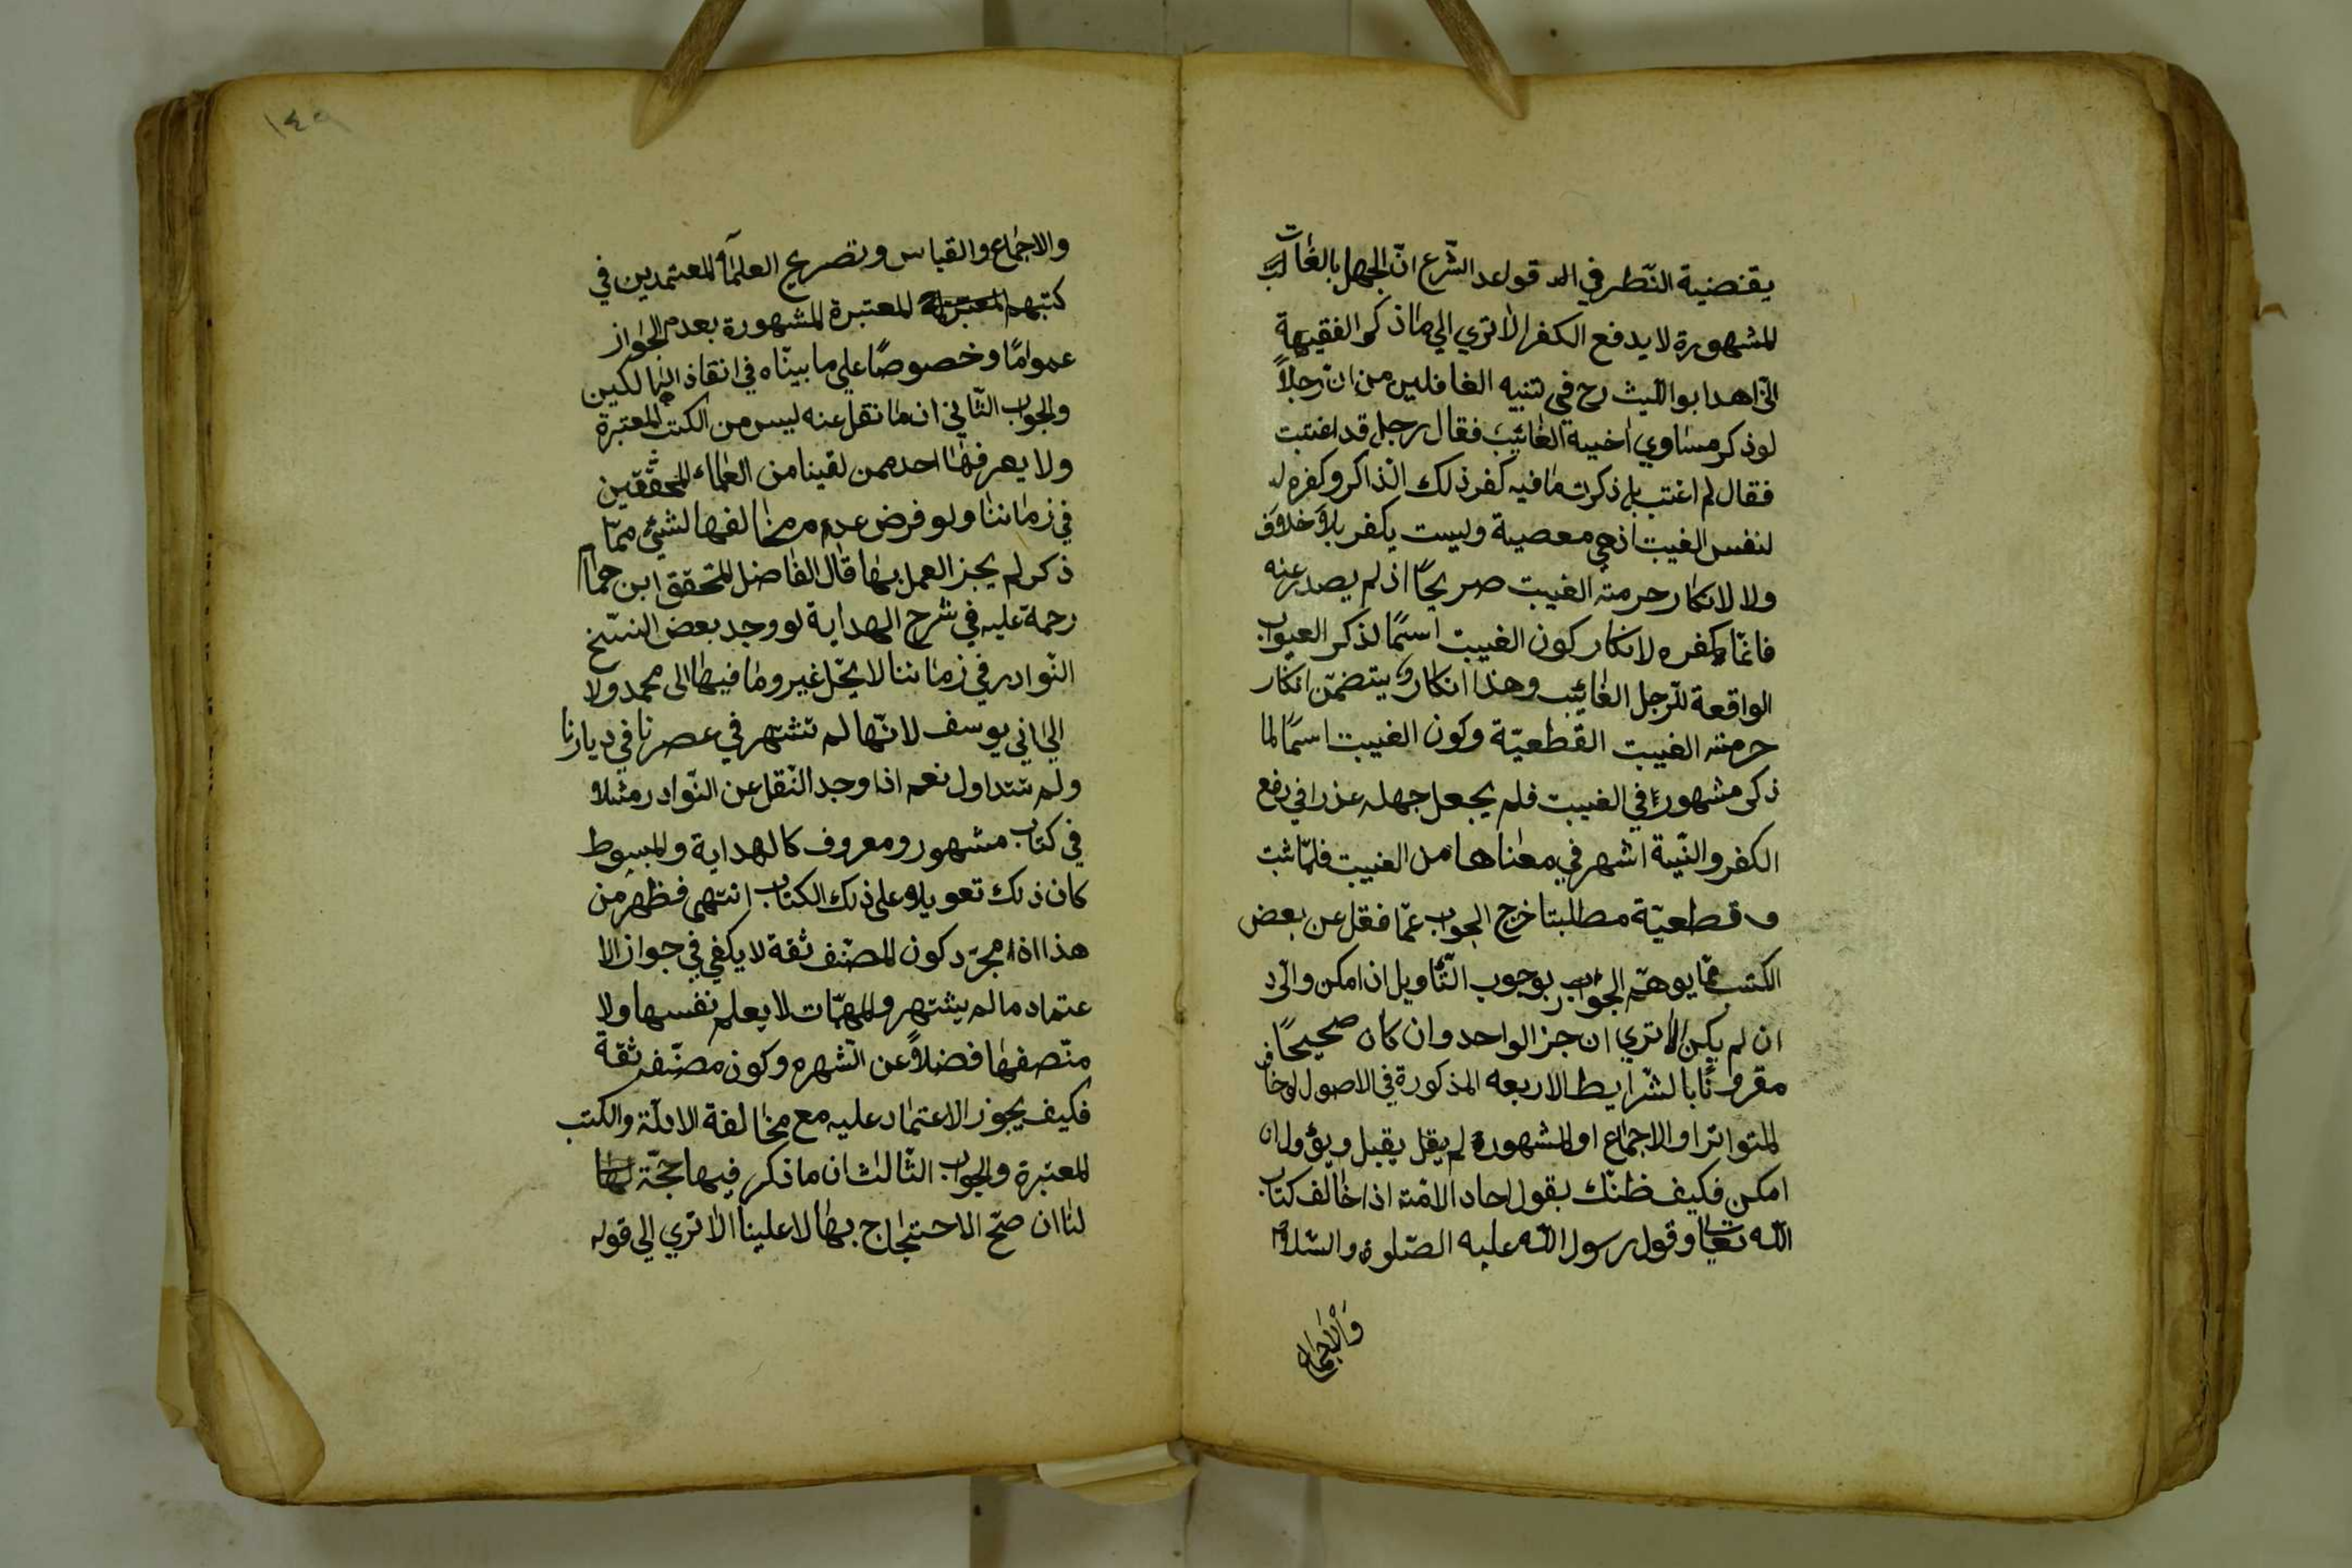 يقتضية النّظر في الد قواعد الشّرع انّ الجهل بالغات
المشهورة لا يدفع الكفر الا تري الي ما ذكر الفقيه
الزّاهد ابو اللّيث رح في تنبيه الغافلين من ان رجلاً
لو ذكر مساوي اخيه الغائب فقال رجل قد اغتبت
فقال لم اغتب بل ذكرت ما فيه كفر ذلك الذاكر وكفره لا
لنفس الغيبت اذ هي معصية وليست يكفر بلا خلاف
ولا لانكار حرمته الغيبت صريحًا اذ لم يصدر عنه
فانّما كفره لانكار كون الغيبت اسمًا لذكر العيوب
الواقعة للرّجل الغائب وهذا انكار يتضمّن انكار
حرمته الغيبت القطعيّة وكون الغيبت اسمًا لما
ذكر مشهور في الغيبت فلم يجعل جهله عذرا في رفع
الكفر والنّية اشهر في معناها من الغيبت فلمّا ثبت
قطعيّة مطلبتا خرج الجواب عمّا فقل عن بعض
الكتب ممّا يوهم الجواب بوجوب التّاويل ان امكن والرّد
ان لم يكن الا تري ان جز الواحد وان كان صحيحًا
مقرونًا بالشّرايط الاربعه المذكورة في الاصول لو خالف
المتواتر او الاجماع او المشهورة لم يقل يقبل ويؤول ان
امكن فكيف ظنّك بقول احاد الامّته اذا خالف كتاب
اللّه تعا وقول رسول اللّه عليه الصّلوة والسّلام
والاجماع
١٤٩
والاجماع والقياس وتصريح العلمآء المعتمدين في
كتبهم المعتبرة المشهورة بعدم الجواز
عمومًا وخصوصًا علي ما بينّاه في انقاذ الهالكين
والجواب الثّاني ان ما نقل عنه ليس من الكتب المعتبرة
ولا يعرفها احد ممن لقينا من العلماء المحقّقين
في زماننا ولو فرض عدم مخالفها لشيئ ممّا
ذكر لم يجز العمل بها قال الفاضل المحقق ابن همام
رحمة عليه في شرح الهداية لو وجد بعض النسّخ
النّوادر في زماننا لا يحّل غيرو ما فيها الى محمد ولا
الي ابي يوسف لانّها لم تشتهر في عصرنا في ديارنا
ولم تتداول نعم اذا وجد النّقل عن النّوادر مثلا
في كتاب مشهور ومعروف كالهداية والمبسوط
كان ذلك تعويلا على ذلك الكتاب انتهى فظهر من
هذا اذا مجرّد كون المصنّف ثقة لا يكفي في جواز الا
عتماد ما لم يشتهر والمهمّات لا يعلم نفسها ولا
منّصفها فضلاً عن الشّهره وكون مصنّفه ثقة
فكيف يجوز الاعتماد عليه مع مخالفة الادلّة والكتب
المعتبرة والجواب الثّالث ان ما ذكر فيها حجّة
لنا ان صّح الاحتجاج بها لا علينا الا تري الي قوله